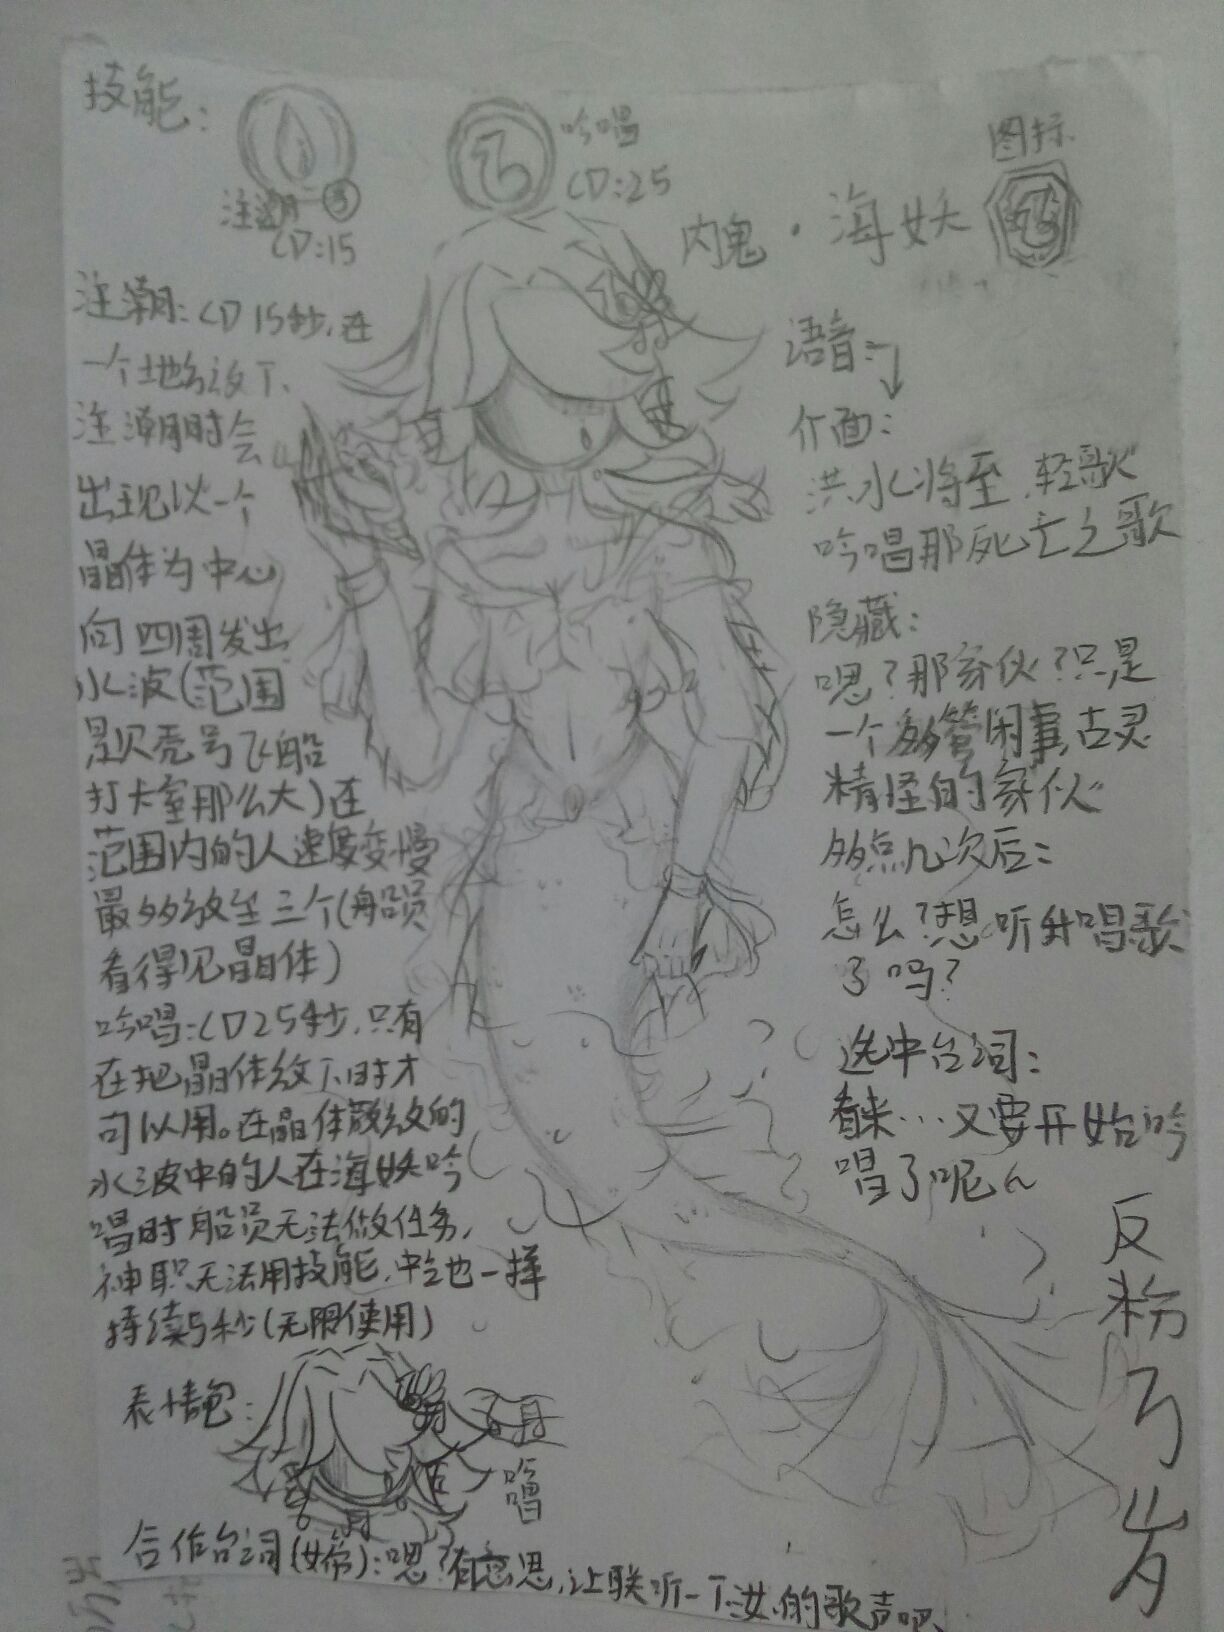 技能：
注潮
CD:15
吟唱
CD:25
图标
内鬼·海妖
注潮:CD15秒,在
一个地方放下、
注潮时会
出现以一个
晶体为中心
向四周发出
水波(范围
是贝壳号飞船
打卡室那么大)在
范围内的人速度变慢
最多放至三个(船员
看得见晶体)
吟唱:CD25秒,只有
在把晶体放下时才
可以用。在晶体散放的
水波中的人在海妖吟
唱时船员无法做任务,
神职无法用技能,中立也一样
持续5秒(无限使用)
表情包:
吟唱
合作台词(女帝):嗯?有意思,让朕听一下汝的歌声吧、
语音:↓
介面:
洪水将至,轻歌
吟唱那死亡之歌
隐藏:
嗯?那家伙?只是
一个多管闲事,古灵
精怪的家伙
多点几次后:
怎么?想听我唱歌
了吗?
选中台词:
看来…又要开始吟
唱了呢~
反
粉